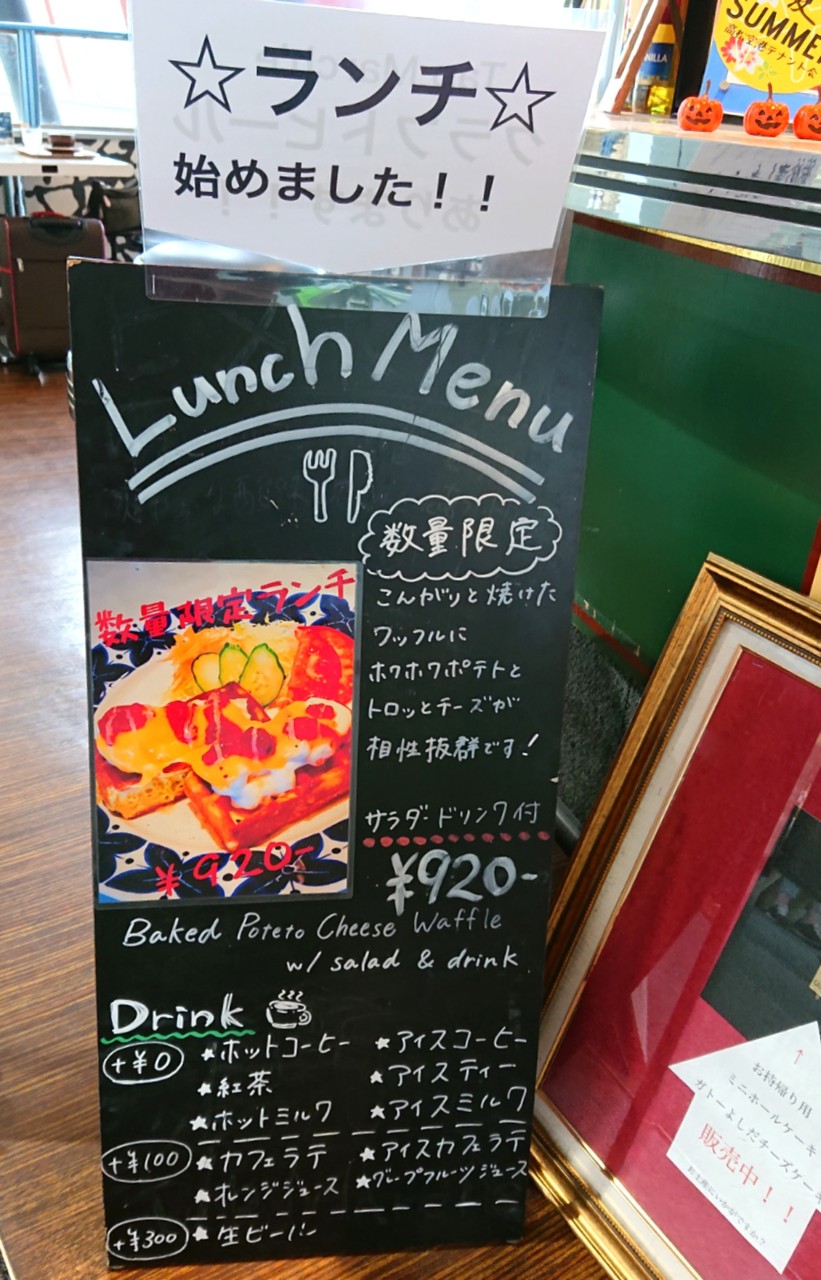 ☆ランチ☆
始めました！！
Lunch Menu
数量限定
こんがりと焼けた
ワッフルに
ホクホクポテトと
トロッとチーズが
相性抜群です！
サラダ・ドリンク付
¥920-
数量限定ランチ
¥920-
Baked Poteto Cheese Waffle
w/ salad & drink
Drink
+¥0
★ホットコーヒー ★アイスコーヒー
★紅茶 ★アイスティー
★ホットミルク ★アイスミルク
+¥100
★カフェラテ ★アイスカフェラテ
★オレンジジュース ★グレープフルーツジュース
+¥300
★生ビール
VANILLA
夏
SUMMER
↑
お持帰り用
ミニホールケーキ
ガトーよしだチーズケーキ
販売中！！
お土産にいかがですか？